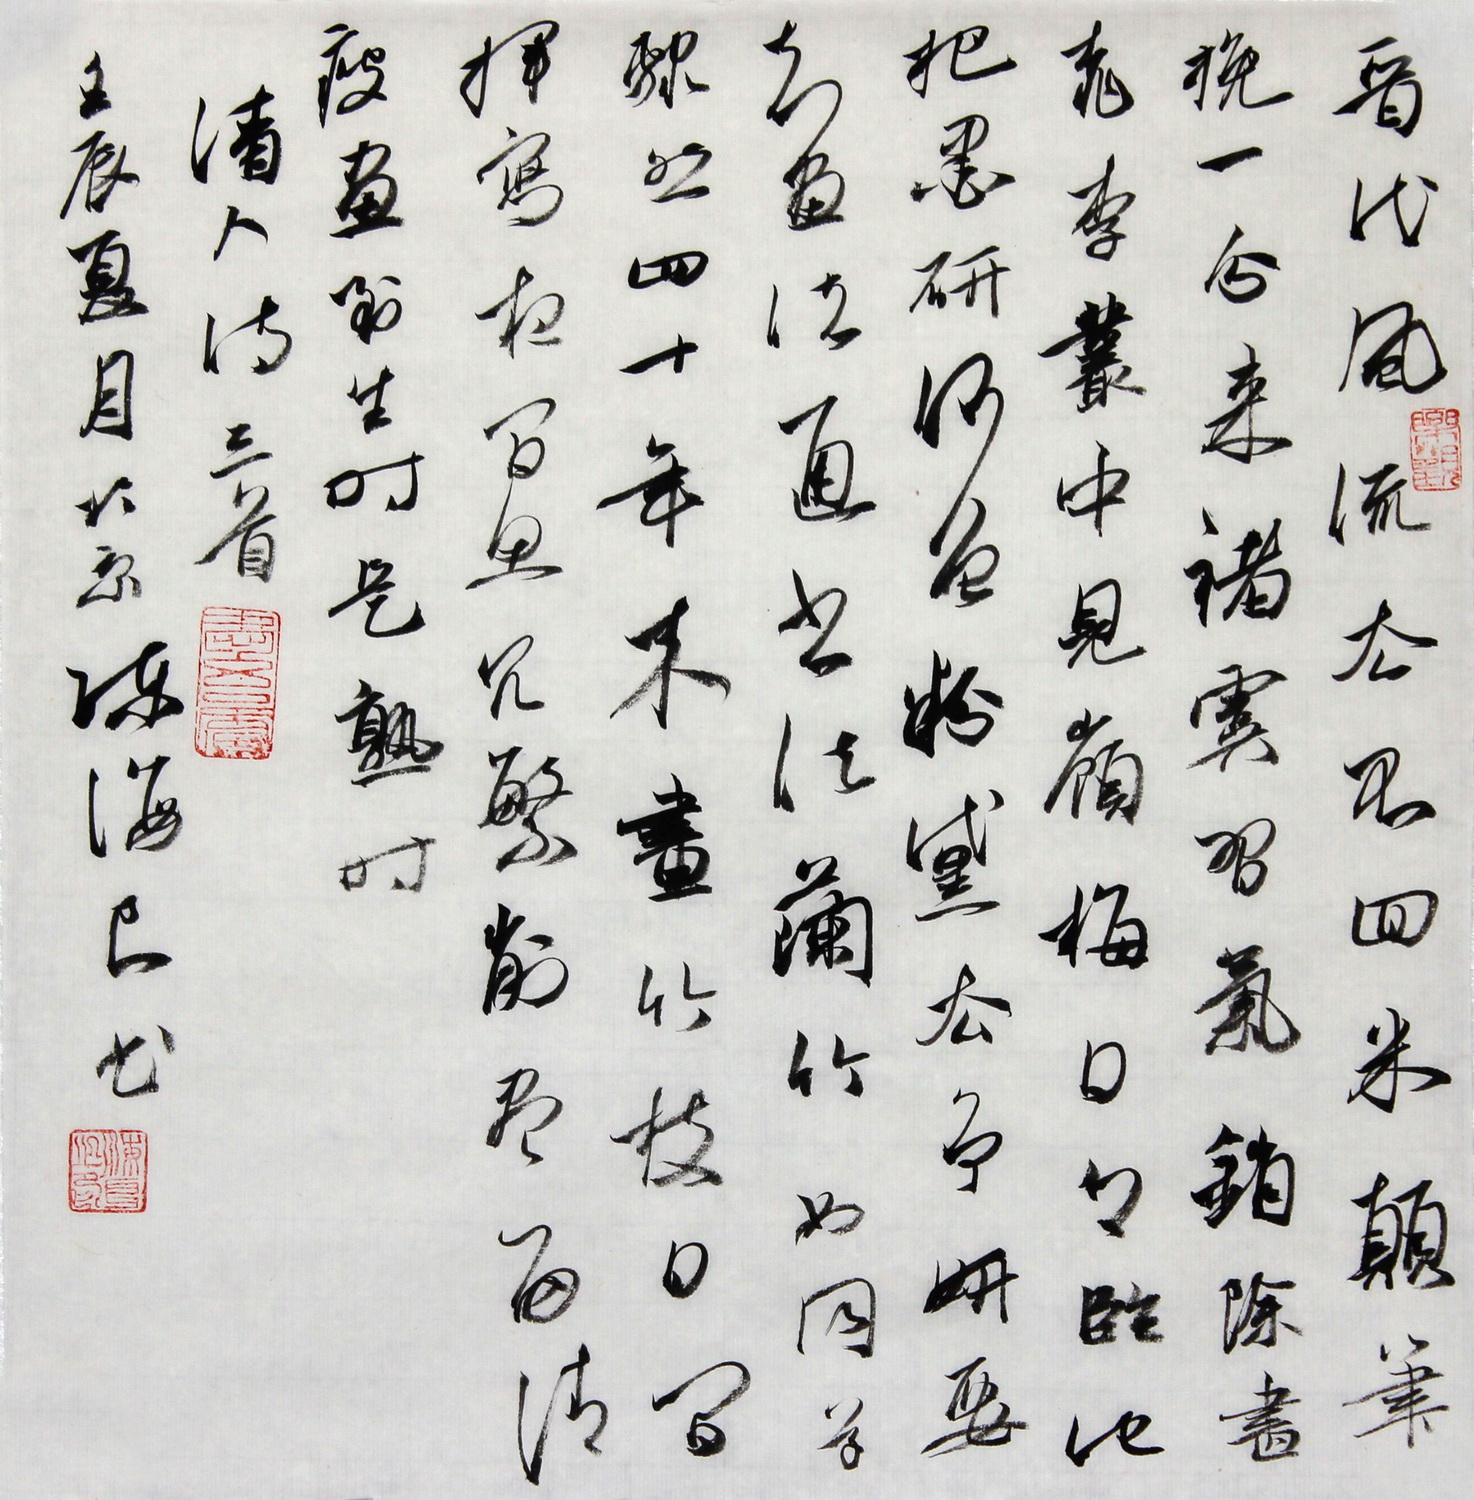 晉代風流去不回米顛筆
挽一分來褚虞習氣銷除盡
桃李叢中見嶺梅日日臨池
把墨研何曾粉黛去爭妍要
知畫法通書法蘭竹如同草
隸然四十年來畫竹枝日間
揮寫夜間思冗繁削盡留清
瘦畫到生時是熟時
清人詩三首
壬辰夏月於京陳海良書